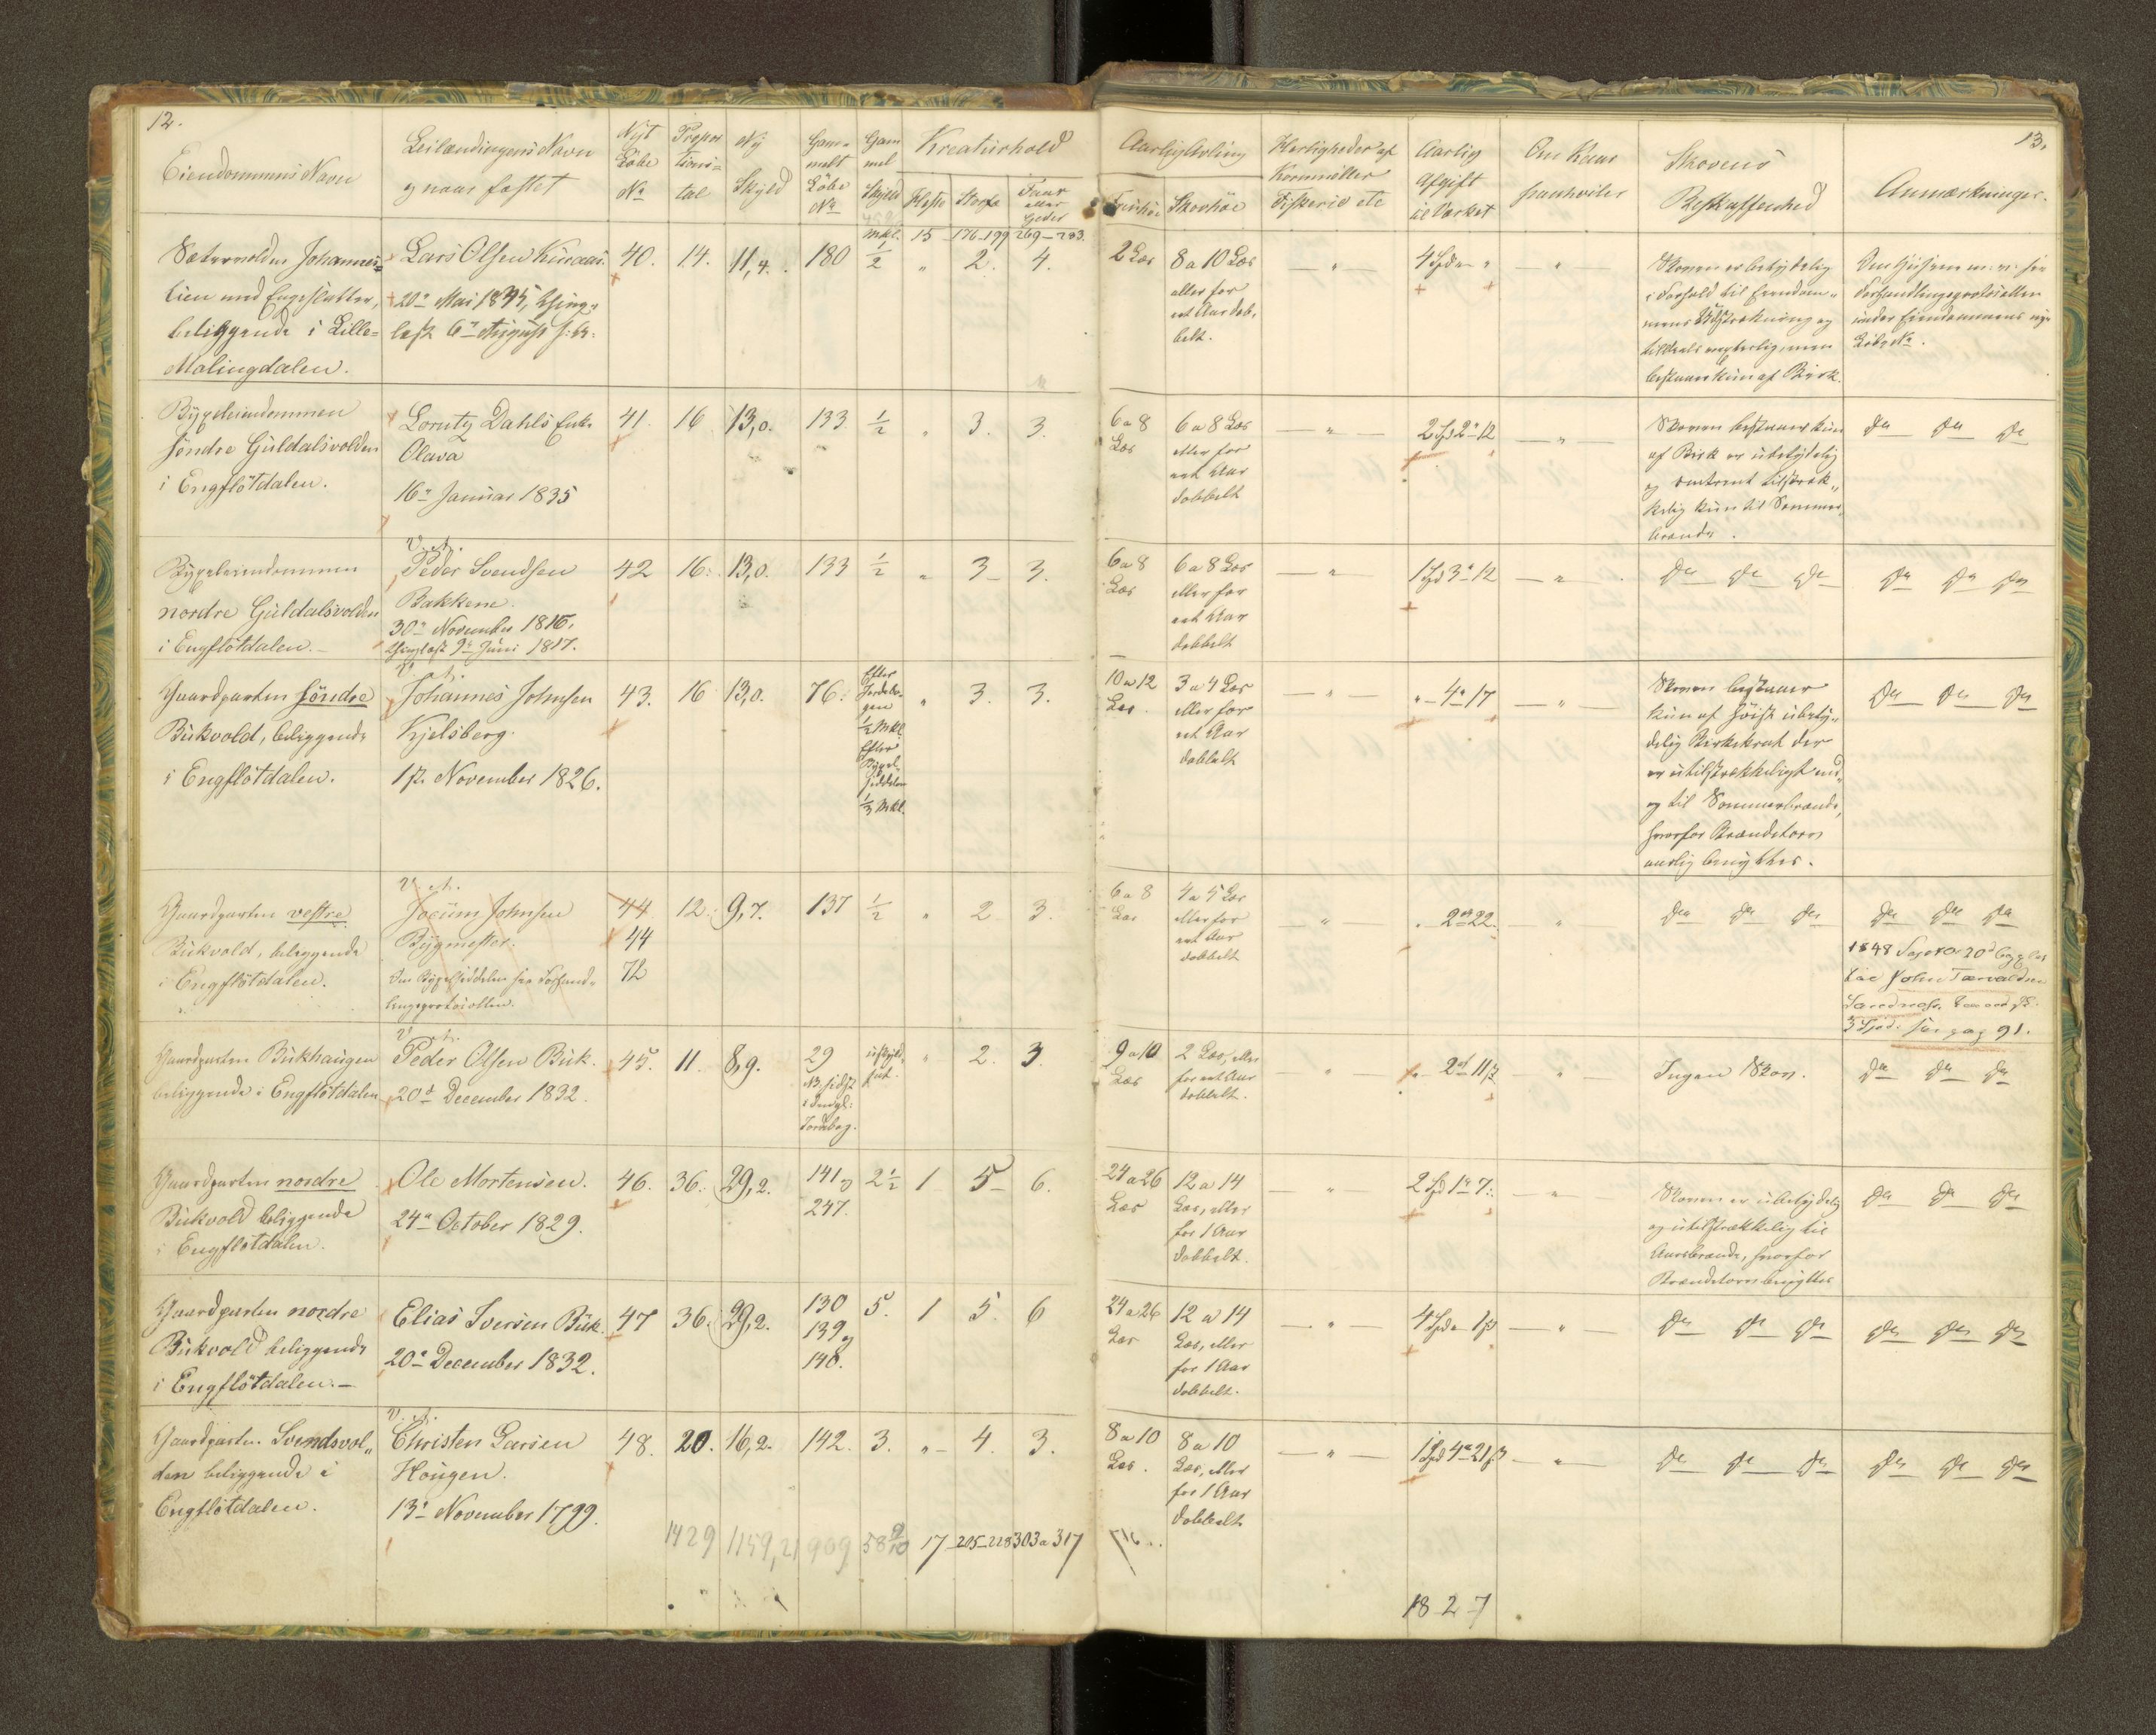 12.
Eiendommens Navn
Leilændingens Navn
og naar fæstet
Nyt
Löbe
No
Propor
tions=
tal
Ny
Skyld
Gam=
melt
Löbe
No
Gam
mel
Skyld
Kreaturhold
Heste
Storfæ
Faar
eller
Geder
Mkl. 15 176-199 269-283.
Sætervolden Johannes=
lien med Engeslatter,
beliggende i Lille=
Malingdalen.
Lars Olsen Kuraas.
20de Mai 1835, Thing=
læst 6te August s: A:
40. 14. 11,4. 180 1/2 " 2. 4.
Bygseleiendommen
söndre Guldalsvolden
i Engflötdalen.
Lorntz Dahls Enke
Olava
16de Januar 1835
41. 16 13,0. 133 1/2 " 3. 3.
Bygseleiendommen
nordre Guldalsvolden
i Engflötdalen.
Peder Svendsen
Bakkene.
30te November 1816.
Thinglæst 9de Juni 1817.
42 16. 13,0. 133 1/2 " 3 3.
Gaardparten söndre
Bukvold, beliggende
i Engflötdalen.
Johannes Johnsen
Kjelsberg.
1st November 1826.
43. 16 13,0. 76.
Efter
Jordebo-
gen
1/2 Mkl.
Efter
Bygsel-
seddelen
1/3 Mkl.
" 3. 3.
Gaardparten vestre
Bukvold, beliggende
i Engflötdalen.
Jocum Johnsen
Bygmester.
Om Bygselseddelen see Forhand-
lingsprotocollen.
44
44
72
12. 9,7. 137 1/2 " 2 3.
Gaardparten Bukhaugen
beliggende i Engflötdalen
Peder Olsen Buk.
20de December 1832.
45. 11. 8,9. 29
NB. sidst
Jordebog.
uskyld-
sat.
" 2. 3
Gaardparten nordre
Bukvold beliggende
i Engflötdalen.
Ole Mortensen.
24de October 1829.
46. 36. 29,2. 141 og
247.
2 1/2 1 5 6.
Gaardparten nordre
Bukvold beliggende
i Engflötdalen.
Elias Iversen Buk.
20de December 1832.
47 36. 29,2. 130
139 og
140.
5. 1 5. 6
Gaardparten Svendsvol=
den beliggende i
Engflötdalen.
Christen Larsen
Hougen.
13de November 1799.
48. 20. 16,2. 142. 3. " 4. 3.
1429 1159,21 909 58 9/10 17 205-228 303 a 317
13.
Aarlig Avling
Frihöe
Skovhöe
Herligheder af
Kornmöller
Fiskerie etc
Aarlig
Afgift
til Værket
Om Kaar
paahviler
Skovens
Beskaffenhed
Anmærkninger.
2 Læs
8 a 10 Læs
eller for
eet Aar dob,
belt.
"
4 Spd " "
"
Skoven er betydelig
i Forhold til Eiendom=
mens Udstrækning og
tildeels vægterlig, men
bestaaer kun af Birk.
Om Husene m: v: see
Forhandlingsprotocollen
under Eiendommens nye
Löbe No.
6 a 8
Læs
6 a 8 Læs
eller for
eet Aar
dobbelt
"
2 Spd 2 12
"
Skoven bestaaer kun
af Birk er ubetydelig
og omtrent tilstræk=
kelig kun til Sommer,
brænde.
Do Do Do
6 a 8
Læs
6 a 8 Læs
eller for
eet Aar
dobbelt
"
1 Spd 3 12
"
Do Do Do
Do Do Do
10 a 12
Læs.
3 a 4 Læs
eller for
eet Aar
dobbelt
"
" 4 17
"
Skoven bestaaer
kun af höist ubety=
delig Birkekrat der
er utilstrækkeligt end,
og til Sommerbrænde,
hvorfor Brændetorv
aarlig benyttes.
Do Do Do
6 a 8
Læs
4 a 5 Læs
eller for
eet Aar
dobbelt
"
" 2 22.
"
Do Do Do
Do Do Do
1848 bygslet
til John Tærvaldsen
3 Spd. pag 91.
9 a 10
Læs
2 Læs, eller
for eet Aar
dobbelt.
"
" 2 11 ß
"
Ingen Skov.
Do Do Do
24 a 26
Læs
12 a 14
Læs, eller
for 1 Aar
dobbelt.
"
2 Spd 1 7.
"
Skoven er ubetydelig
og utilstrækkelig til
Aarsbrænde, hvorfor
Brændetorv benyttes
Do Do Do
24 a 26
Læs
12 a 14
Læs, eller
for 1 Aar
dobbelt.
"
4 Spd " 1 ß
"
Do Do Do
Do Do Do
8 a 10
Læs.
8 a 10
Læs, eller
for 1 Aar
dobbelt
"
1 Spd 4 21 ß
"
Do Do Do
Do Do Do
18 2 7